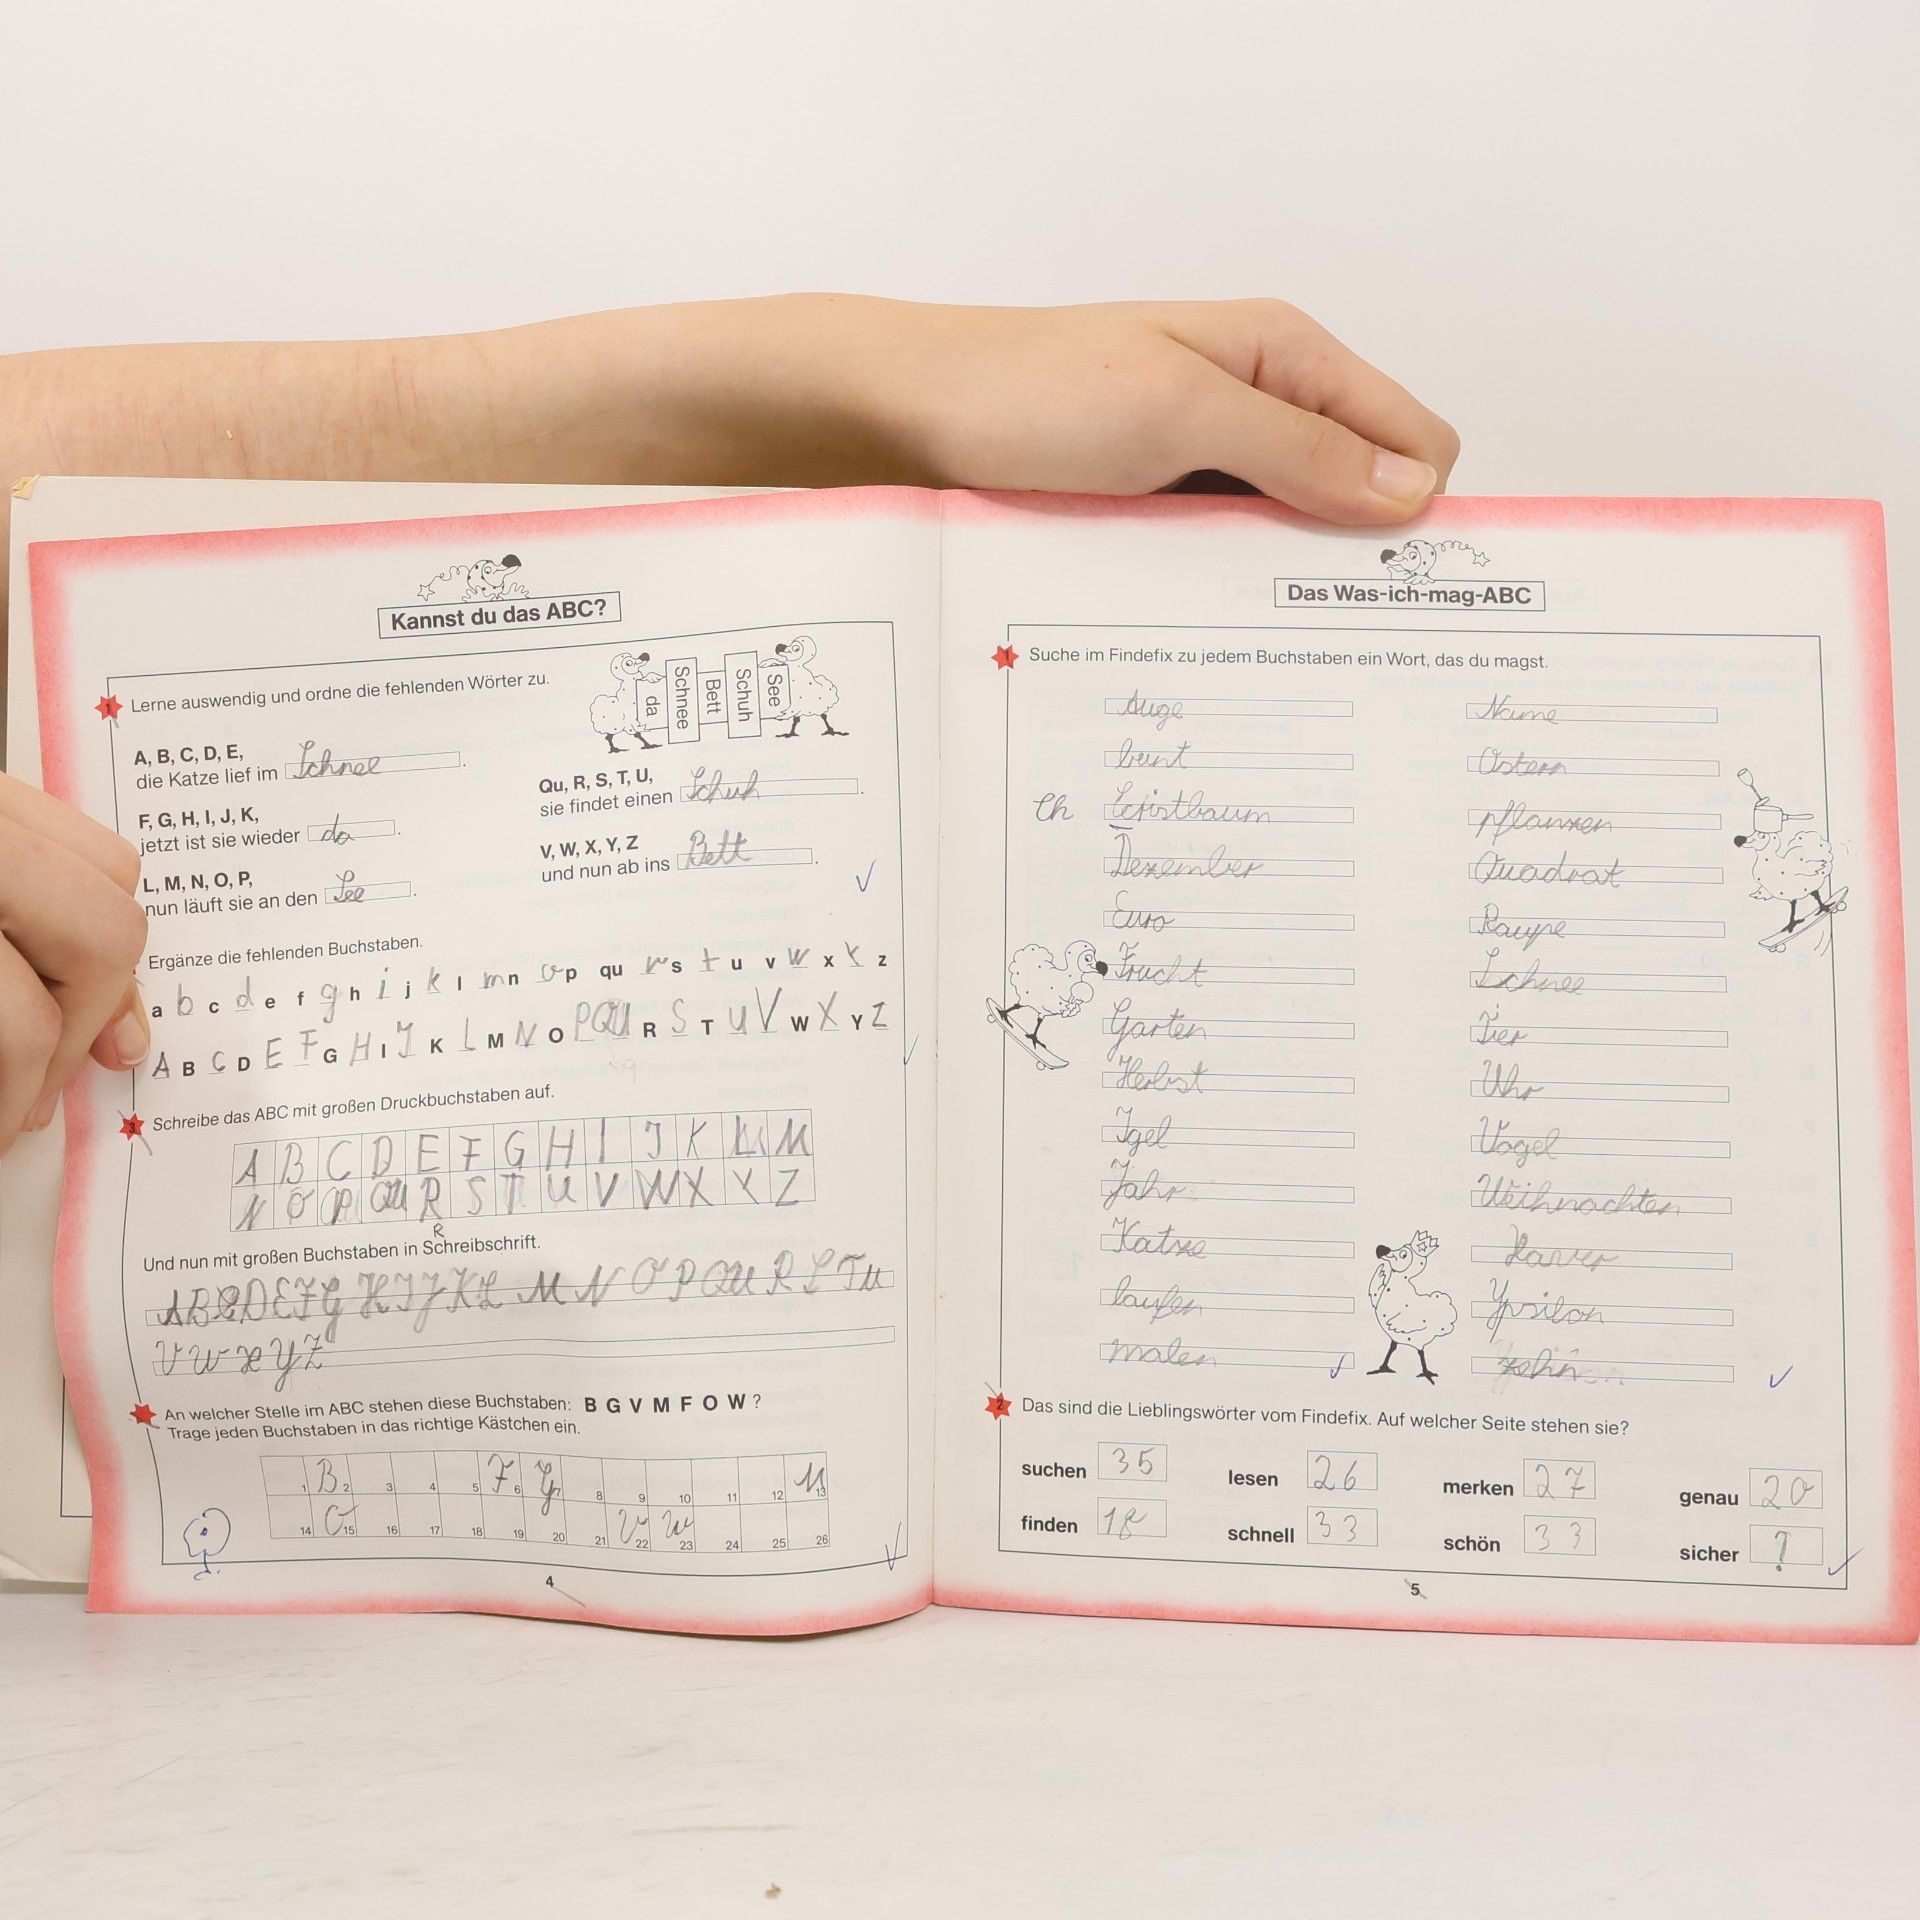 Kannst du das ABC?
1 Lerne auswendig und ordne die fehlenden Wörter zu.
da
Schnee
Bett
Schuh
See
A, B, C, D, E,
die Katze lief im Schnee.
F, G, H, I, J, K,
jetzt ist sie wieder da.
L, M, N, O, P,
nun läuft sie an den See.
Qu, R, S, T, U,
sie findet einen Schuh.
V, W, X, Y, Z
und nun ab ins Bett.
Ergänze die fehlenden Buchstaben.
a b c d e f g h i j k l m n o p qu r s t u v w x y z
A B C D E F G H I J K L M N O P QU R S T U V W X Y Z
3 Schreibe das ABC mit großen Druckbuchstaben auf.
A B C D E F G H I J K L M
N O P QU R S T U V W X Y Z
R
Und nun mit großen Buchstaben in Schreibschrift.
A B C D E F G H I J K L M N O P QU R S T U
V W X Y Z
An welcher Stelle im ABC stehen diese Buchstaben: B G V M F O W ?
Trage jeden Buchstaben in das richtige Kästchen ein.
1 B 2 3 4 5 F 6 G 7 8 9 10 11 12 M 13
14 O 15 16 17 18 19 20 21 V 22 W 23 24 25 26
4
Das Was-ich-mag-ABC
1 Suche im Findefix zu jedem Buchstaben ein Wort, das du magst.
Auge
bunt
Ch
Dezember
Euro
Frucht
Garten
Herbst
Igel
Jahr
Katze
laufen
malen
Name
Ostern
pflanzen
Quadrat
Raupe
Schnee
Tier
Uhr
Vogel
Weihnachten
Xaver
Ypsilon
2 Das sind die Lieblingswörter vom Findefix. Auf welcher Seite stehen sie?
suchen 35 lesen 26 merken 27 genau 20
finden 18 schnell 33 schön 33 sicher ?
5